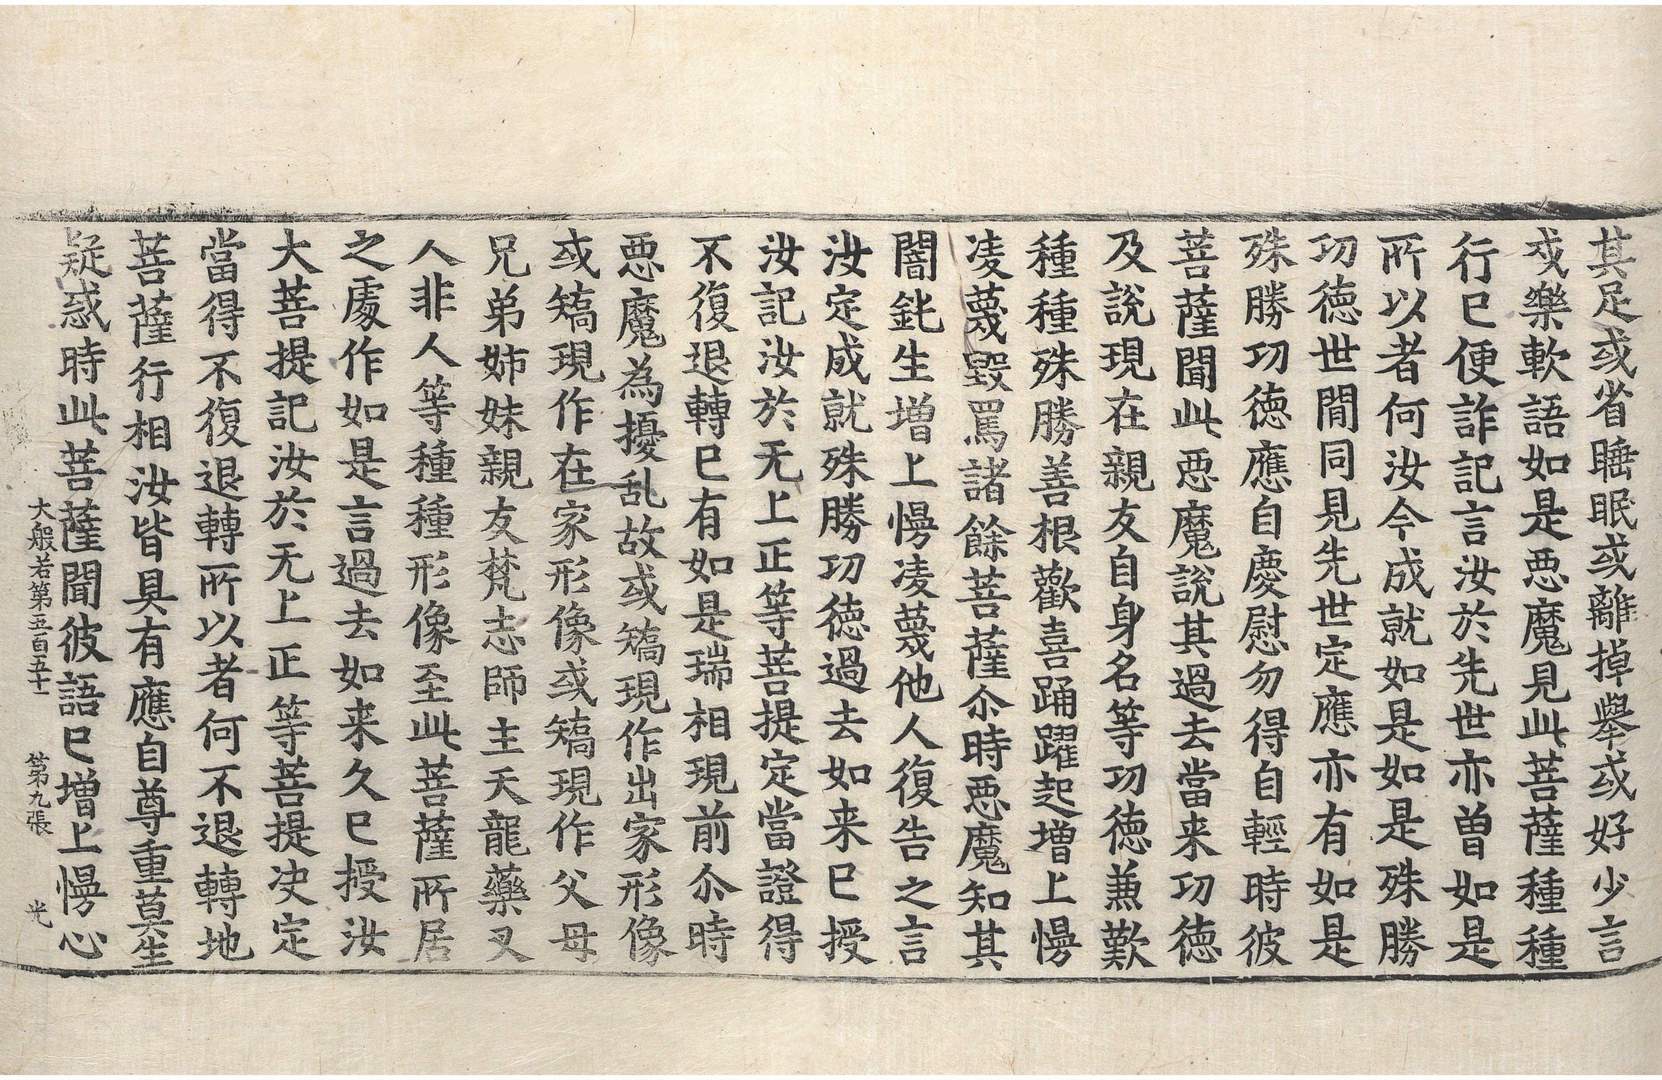 其足或省睡眠或離掉舉或好少言
或樂軟語如是惡魔見此菩薩種種
行已便詐記言汝於先世亦曾如是
所以者何汝今成就如是如是殊勝
功德世間同見先世定應亦有如是
殊勝功德應自慶慰勿得自輕時彼
菩薩聞此惡魔說其過去當来功德
及說現在親友自身名等功德兼歎
種種殊勝善根歡喜踊躍起增上慢
凌蔑毀罵諸餘菩薩尒時惡魔知其
闇鈍生增上慢凌蔑他人復告之言
汝定成就殊勝功德過去如来已授
汝記汝於无上正等菩提定當證得
不復退轉已有如是瑞相現前尒時
惡魔為擾乱故或矯現作出家形像
或矯現作在家形像或矯現作父母
兄弟姊妹親友梵志師主天龍藥叉
人非人等種種形像至此菩薩所居
之處作如是言過去如来久已授汝
大菩提記汝於无上正等菩提决定
當得不復退轉所以者何不退轉地
菩薩行相汝皆具有應自尊重莫生
疑惑時此菩薩聞彼語已增上慢心
大般若第五百五十一 第九張 光